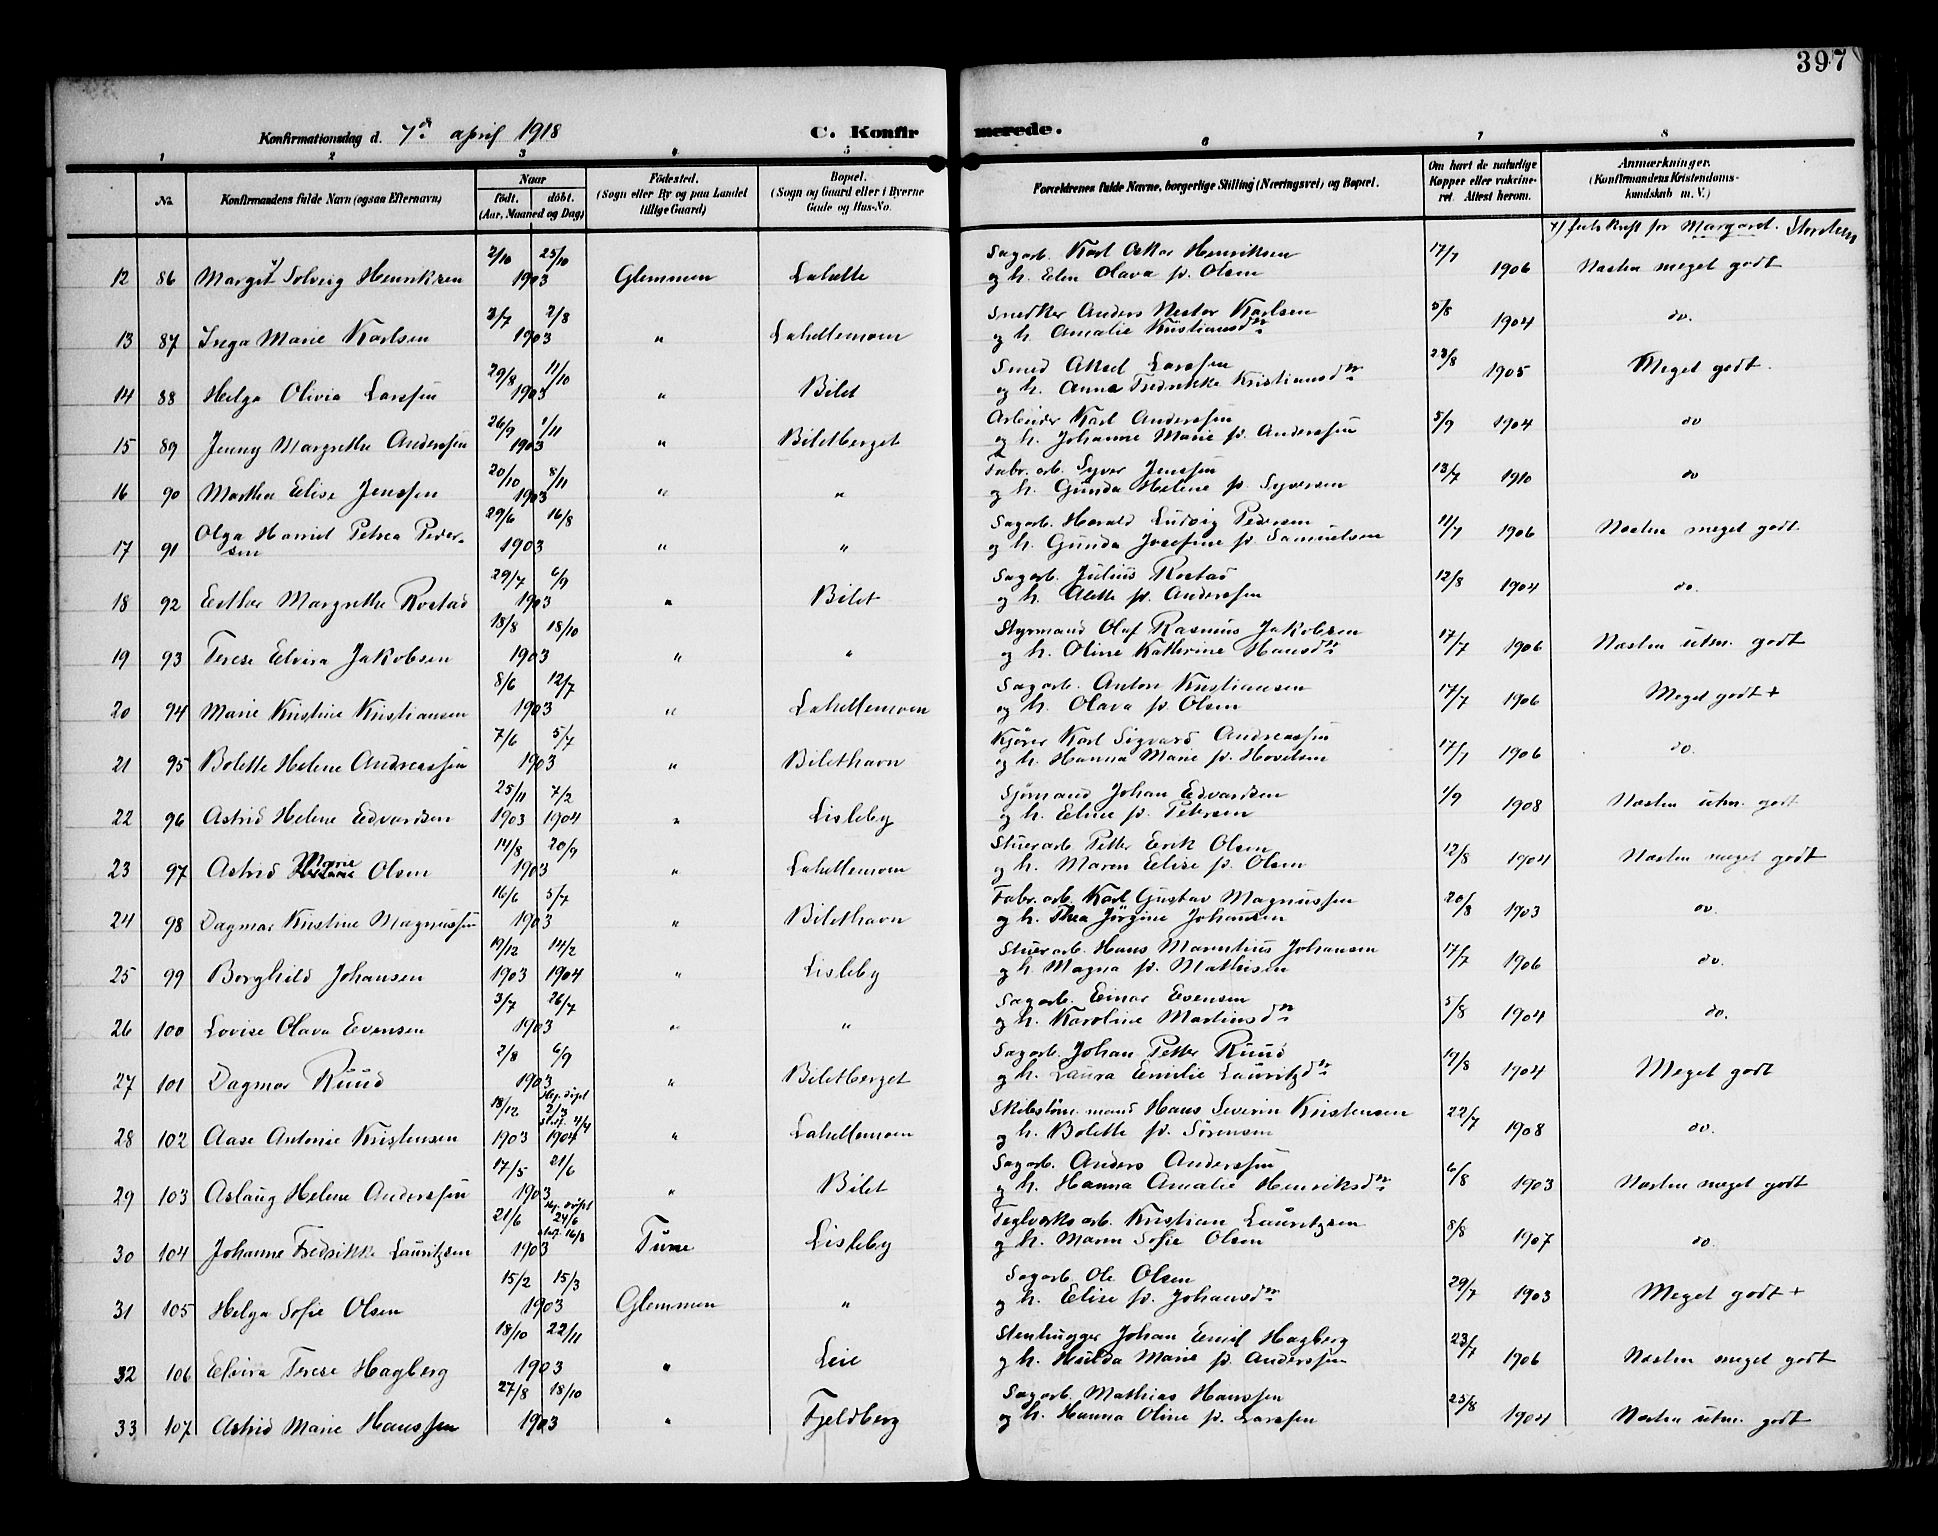 397
Konfirmationsdag d. 7de april 1918 C. Konfirmerede.
1 2 3 4 5 6 7 8
No. Konfirmandens fulde Navn (ogsaa Efternavn) Naar födt. döbt. (Aar, Maaned og Dag) Födested. (Sogn eller By og paa Landet tillige Gaard) Bopæl. (Sogn og Gaard eller i Byerne Gade og Hus-No. Forældrenes fulde Navne, borgerlige Stilling (Næringsvei) og Bopæl. Om havt de naturlige Kopper eller vakcineret. Attest herom. Anmærkninger. (Konfirmandens Kristendomskundskab m. V.)
x) for Margaret.
12 86 Margit x) Solveig Henriksen 2/10 25/10 1903 Glemmen Lahelle Sagarb. Karl Oskar Henriksen og h. Elen Olava f. Olsen 17/7 1906 Næsten meget godt
13 87 Inga Marie Karlsen 3/7 2/8 1903 " Lahellemoen Snedker Anders Nestor Karlsen og h. Amalie Kristiansdtr 5/8 1904 do.
14 88 Helga Olivia Larssen 29/8 11/10 1903 " Bilet Smed Aksel Larssen og h. Anna Fredrikke Kristiansdtr 23/8 1905 Meget godt.
15 89 Jenny Margrethe Anderssen 26/9 1/11 1903 " Biletberget Arbeider Karl Anderssen og h. Johanne Marie f. Anderssen 5/9 1904 do
16 90 Martha Elise Jenssen 20/10 8/11 1903 " " Fabr. arb. Syver Jenssen og h. Gunda Helene f. Syversen 13/7 1910 do
17 91 Olga Harriet Petrea Pedersen 29/6 16/8 1903 " " Sagarb. Harald Ludvig Pedersen og h. Gunda Josefine f. Samuelsen 11/7 1906 Næsten meget godt.
18 92 Esther Margrethe Rostad 29/7 6/9 1903 " Bilet Sagarb. Julius Rostad og h. Alette f. Anderssen 12/8 1904 do.
19 93 Terese Elvira Jakobsen 18/8 18/10 1903 " " Styrmand Olaf Rasmus Jakobsen og h. Oline Katherine Hansdtr 17/7 1906 Næsten utm. godt
20 94 Marie Kristine Kristiansen 8/6 12/7 1903 " Lahellemoen Sagarb. Anton Kristiansen og h. Olava f. Olsen 17/7 1906 Meget godt +
21 95 Bolette Helene Andreassen 7/6 5/7 1903 " Bilethavn Kjörer Karl Sigvard Andreassen og h. Hanna Marie f. Hovelsen 17/7 1906 do.
22 96 Astrid Helene Edvardsen 25/11 1903 7/2 1904 " Lisleby Sjömand Johan Edvardsen og h. Eline f. Petersen 1/9 1908 Næsten utm. godt
23 97 Astrid Marie Olsen 14/8 20/9 1903 " Lahellemoen Stuerarb Petter Erik Olsen og h. Maren Elise f. Olsen 12/8 1904 Næsten meget godt
24 98 Dagmar Kristine Magnussen 16/6 5/7 1903 " Bilethavn Fabr. arb. Karl Gustav Magnussen og h. Thea Jörgine Johansen 20/8 1903 do.
25 99 Borghild Johansen 19/12 1903 14/2 1904 " Lisleby Stuerarb. Hans Marentius Johansen og h. Magna f. Mathisen 17/7 1906 do.
26 100 Lovise Olava Evensen 3/7 26/7 1903 " " Sagarb. Einar Evensen og h. Karoline Martinsdtr 5/8 1904 do.
27 101 Dagmar Ruud 2/8 6/9 1903 " Biletberget Sagarb. Johan Petter Ruud og h. Laura Emilie Lauritzdtr 19/8 1904 Meget godt
28 102 Aase Antonie Kristensen 18/12 1903 Hj. döpt 2/3 stadf. 4/4 1904 " Lahellemoen Skibstöm. mand Hans Severin Kristensen og h. Bolette f. Sörensen 22/7 1908 do.
29 103 Aslaug Helene Anderssen 17/5 21/6 1903 " Bilet Sagarb. Anders Anderssen og h. Hanna Amalie Henriksdtr 6/8 1903 Næsten meget godt
30 104 Johanne Fredrikke Lauritzsen 21/6 Hj. döpt 24/6 stadf. 16/8 1903 Tune Lisleby Teglverksarb. Kristian Lauritzsen og h. Maren Sofie Olsen 8/8 1907 do.
31 105 Helga Sofie Olsen 15/2 15/3 1903 Glemmen " Sagarb. Ole Olsen og h. Elise f. Johansdtr 29/7 1903 Meget godt +
32 106 Elvira Terese Hagberg 18/10 22/11 1903 " Leie Stenhugger Johan Emil Hagberg og h. Hulda Marie f. Anderssen 23/7 1906 Næsten meget godt
33 107 Astrid Marie Hanssen 27/8 18/10 1903 " Fjeldberg Sagarb. Mathias Hanssen og h. Hanna Oline f. Larssen 25/8 1904 Næsten utm. godt